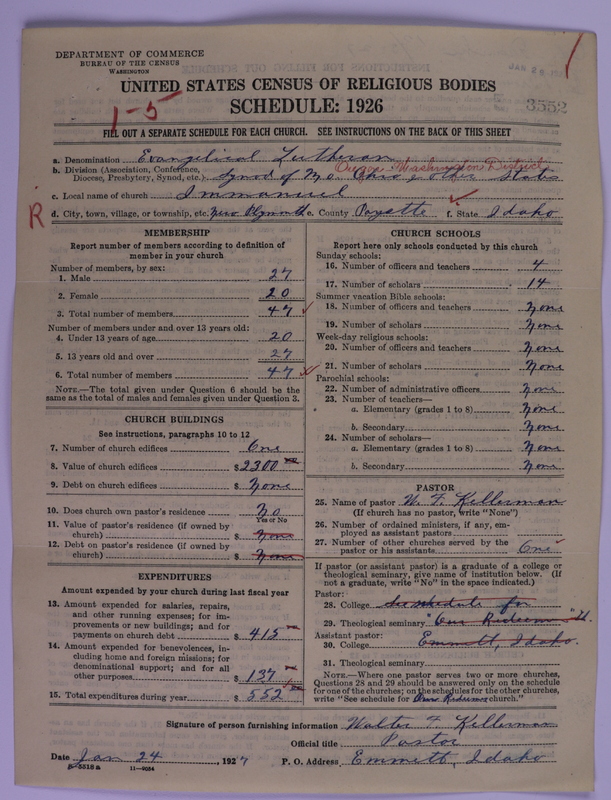 DEPARTMENT OF COMMERCE
BUREAU OF THE CENSUS
WASHINGTON
JAN 26 1927
UNITED STATES CENSUS OF RELIGIOUS BODIES
SCHEDULE: 1926
3552
1-5
FILL OUT A SEPARATE SCHEDULE FOR EACH CHURCH. SEE INSTRUCTIONS ON THE BACK OF THIS SHEET
a. Denomination Evangelical Lutheran
Oregon Washington District
b. Division (Association, Conference, Diocese, Presbytery, Synod, etc.) Synod of Mo. Ohio & Other States
c. Local name of church Immanuel
d. City, town, village, or township, etc. New Plymouth e. County Payette f. State Idaho
R
MEMBERSHIP
Report number of members according to definition of
member in your church
Number of members, by sex:
1. Male 27
2. Female 20
3. Total number of members 47
Number of members under and over 13 years old:
4. Under 13 years of age 20
5. 13 years old and over 27
6. Total number of members 47
NOTE.—The total given under Question 6 should be the
same as the total of males and females given under Question 3.
CHURCH BUILDINGS
See instructions, paragraphs 10 to 12
7. Number of church edifices One
8. Value of church edifices $2300
9. Debt on church edifices $ None
10. Does church own pastor's residence No
Yes or No
11. Value of pastor's residence (if owned by
church) $ None
12. Debt on pastor's residence (if owned by
church) $ None
EXPENDITURES
Amount expended by your church during last fiscal year
13. Amount expended for salaries, repairs,
and other running expenses; for im-
provements or new buildings; and for
payments on church debt $ 415
14. Amount expended for benevolences, in-
cluding home and foreign missions; for
denominational support; and for all
other purposes $ 137
15. Total expenditures during year $ 552
CHURCH SCHOOLS
Report here only schools conducted by this church
Sunday schools:
16. Number of officers and teachers 4
17. Number of scholars 14
Summer vacation Bible schools:
18. Number of officers and teachers None
19. Number of scholars None
Week-day religious schools:
20. Number of officers and teachers None
21. Number of scholars None
Parochial schools:
22. Number of administrative officers None
23. Number of teachers—
a. Elementary (grades 1 to 8) None
b. Secondary None
24. Number of scholars—
a. Elementary (grades 1 to 8) None
b. Secondary None
PASTOR
25. Name of pastor W. F. Kellerman
(If church has no pastor, write "None")
26. Number of ordained ministers, if any, em-
ployed as assistant pastors
27. Number of other churches served by the
pastor or his assistants One
If pastor (or assistant pastor) is a graduate of a college or
theological seminary, give name of institution below. (If
not a graduate, write "No" in the space indicated.)
Pastor:
28. College See schedule for
29. Theological seminary Our Redeemer
Assistant pastor:
30. College Emmett, Idaho.
31. Theological seminary
NOTE.—Where one pastor serves two or more churches,
Questions 28 and 29 should be answered only on the schedule
for one of the churches; on the schedules for the other churches,
write "See schedule for Our Redeemer church."
Signature of person furnishing information Walter F. Kellerman
Official title Pastor
Date Jan 24, 1927 P. O. Address Emmett, Idaho
8-5518 a 11-9034